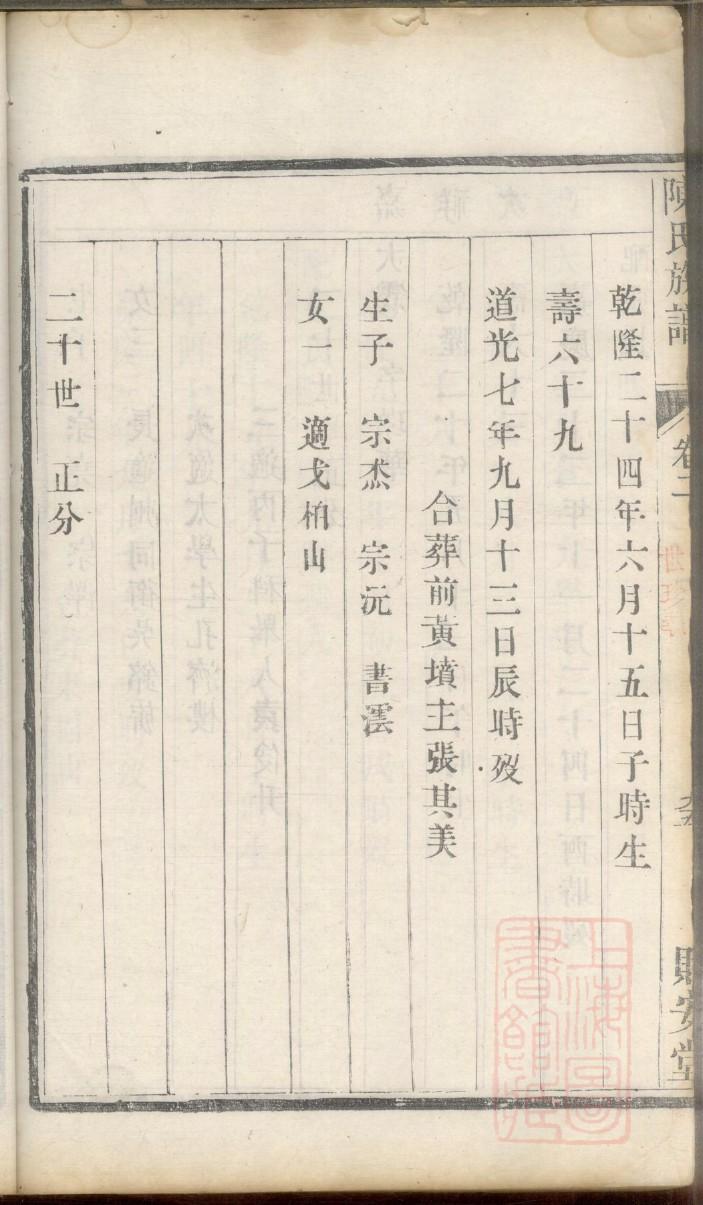 陳氏族譜 卷二 九五
乾隆二十四年六月十五日子時生
壽六十九
道光七年九月十三日辰時歿
合葬前黃墳主張其美
生子 宗杰 宗沅 書澐
女一 適戈柏山
二十世 正分
上海圖書館藏